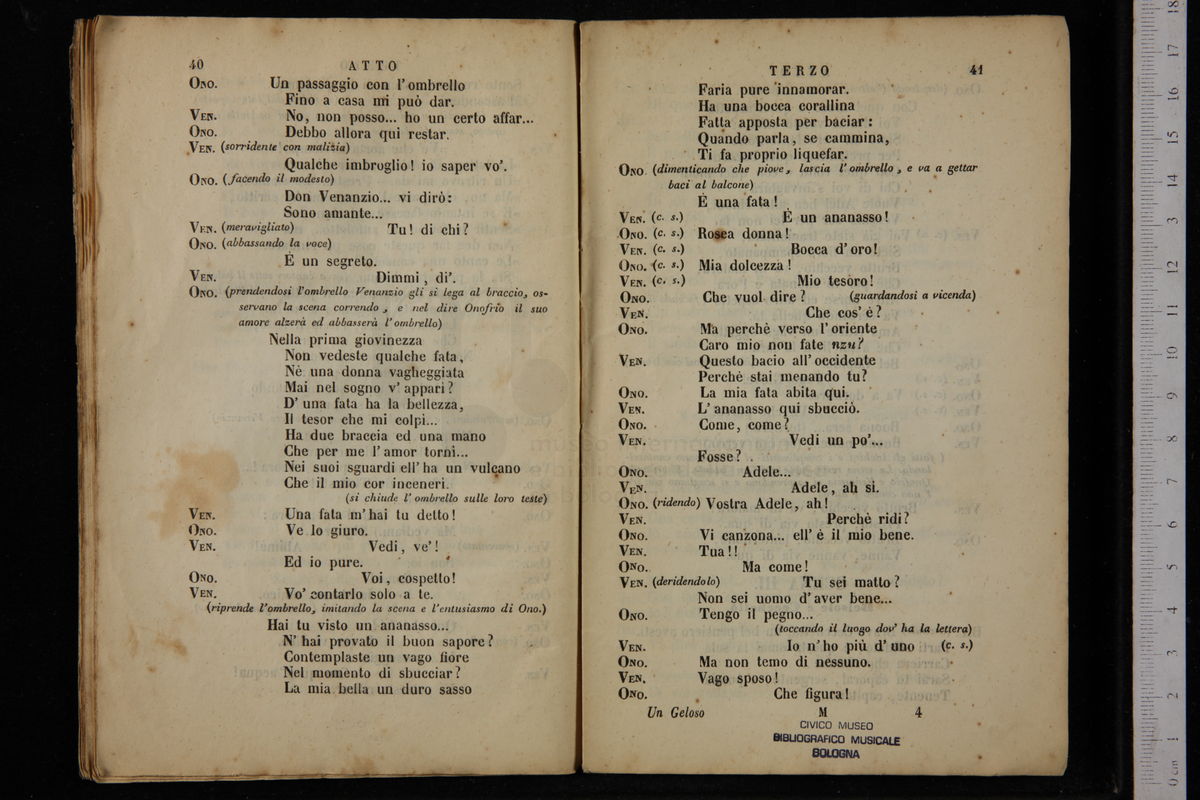 40 ATTO
Ono. Un passaggio con l' ombrello
Fino a casa mi può dar.
Ven. No, non posso... ho un certo affar...
Ono. Debbo allora qui restar.
Ven. (sorridente con malizia)
Qualche imbroglio! io saper vo'.
Ono. (facendo il modesto)
Don Venanzio... vi dirò:
Sono amante...
Ven. (meravigliato) Tu! di chi?
Ono. (abbassando la voce)
È un segreto.
Ven. Dimmi, di'.
Ono. (prendendosi l'ombrello Venanzio gli si lega al braccio, os-
servano la scena correndo, e nel dire Onofrio il suo
amore alzerà ed abbasserà l'ombrello)
Nella prima giovinezza
Non vedeste qualche fata,
Nè una donna vagheggiata
Mai nel sogno v' apparì?
D' una fata ha la bellezza,
Il tesor che mi colpì...
Ha due braccia ed una mano
Che per me l'amor tornì...
Nei suoi sguardi ell' ha un vulcano
Che il mio cor incenerì.
(si chiude l' ombrello sulle loro teste)
Ven. Una fata m'hai tu detto!
Ono. Ve lo giuro.
Ven. Vedi, ve'!
Ed io pure.
Ono. Voi, cospetto!
Ven. Vo' contarlo solo a te.
(riprende l'ombrello, imitando la scena e l'entusiasmo di Ono.)
Hai tu visto un ananasso...
N' hai provato il buon sapore?
Contemplaste un vago fiore
Nel momento di sbucciar?
La mia bella un duro sasso
TERZO 41
Faria pure innamorar.
Ha una bocca corallina
Fatta apposta per baciar:
Quando parla, se cammina,
Ti fa proprio liquefar.
Ono (dimenticando che piove, lascia l' ombrello, e va a gettar
baci al balcone)
È una fata!
Ven. (c. s.) È un ananasso!
Ono. (c. s.) Rosea donna!
Ven. (c. s.) Bocca d'oro!
Ono. (c. s.) Mia dolcezza!
Ven. (c. s.) Mio tesoro!
Ono. Che vuol dire? (guardandosi a vicenda)
Ven. Che cos' è?
Ono. Ma perchè verso l'oriente
Caro mio non fate nzu?
Ven. Questo bacio all'occidente
Perchè stai menando tu?
Ono. La mia fata abita qui.
Ven. L' ananasso qui sbucciò.
Ono. Come, come?
Ven. Vedi un po'...
Fosse?
Ono. Adele...
Ven. Adele, ah sì.
Ono. (ridendo) Vostra Adele, ah!
Ven. Perchè ridi?
Ono. Vi canzona... ell' è il mio bene.
Ven. Tua!!
Ono. Ma come!
Ven. (deridendolo) Tu sei matto?
Non sei uomo d'aver bene...
Ono. Tengo il pegno...
(toccando il luogo dov' ha la lettera)
Ven. Io n'ho più d'uno (c. s.)
Ono. Ma non temo di nessuno.
Ven. Vago sposo!
Ono. Che figura!
Un Geloso M 4
CIVICO MUSEO
BIBLIOGRAFICO MUSICALE
BOLOGNA